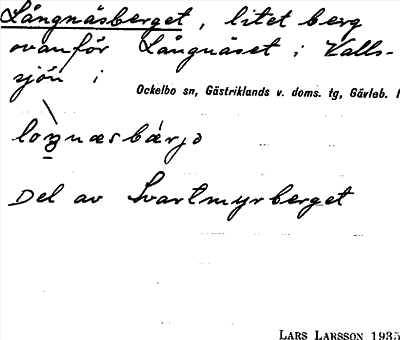 Långnäsberget, litet berg
ovanför Långnäset i Valls-
sjön i
Ockelbo sn, Gästriklands v. doms. tg, Gävleb. l
Del av Svartmyrberget
LARS LARSSON 1935